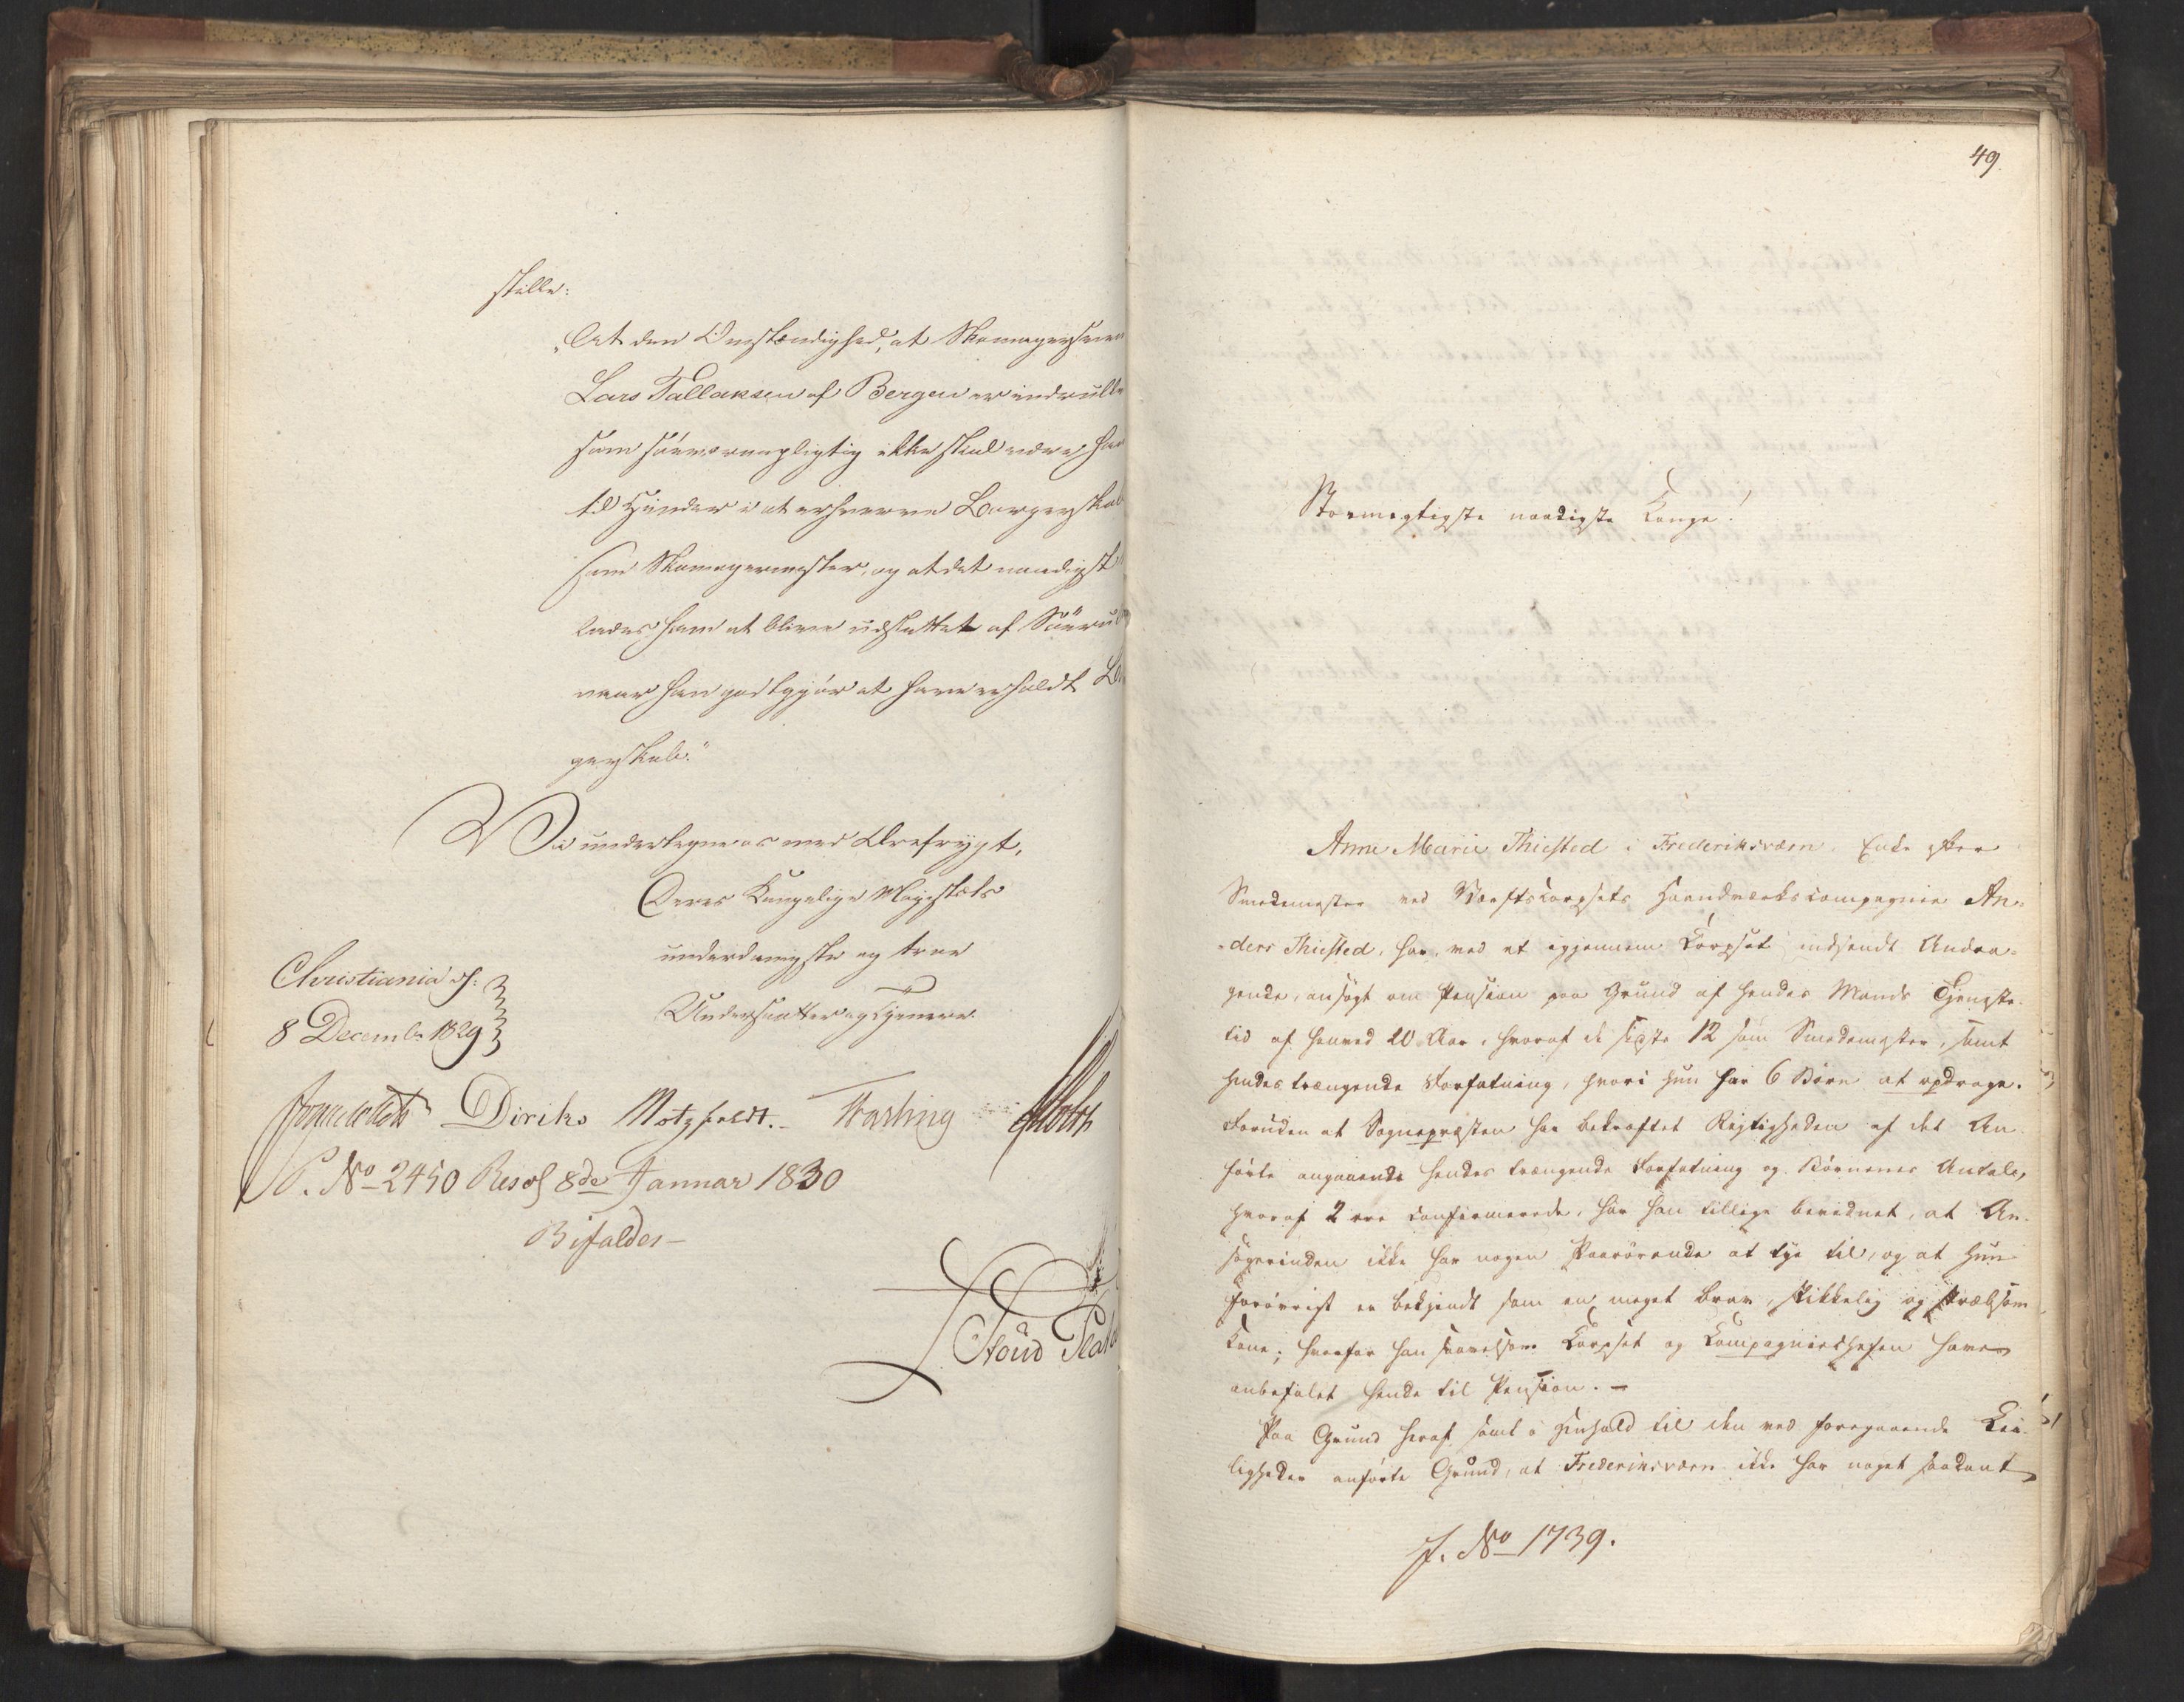 stille:
„At den Omstændighed, at Skomagersvend
Lars Tallaksen af Bergen er indrulle
som söeværnepligtig ikke skal være ham
til Hinder i at erhverve Borgerskab
som Skomagermester, og at det naadigst
lades ham at blive udslettet af Söerul
naar han godtgjör at have erholdt Bor
gerskab."
Vi undertegne os med Ærefrygt,
Deres Kongelige Majestæts
underdanigste og troe
Undersaatter og Tjenere.
Christiania d:
8 Decemb. 1829
Diriks Motzfeldt. Fasting Holst
P. No 2450 Resol 8de Januar 1830
Bifaldes-
49
Stormægtigste naadigste Konge!
Anne Marie Thiested i Frederiksværn, Enke efter
Smedemester ved Værftscorpsets Haandværkscompagnie An-
-ders Thiested, har, ved et igjennem Corpset indsendt Andra-
gende, ansögt om Pension paa Grund af hendes Mands Tjeneste-
tid af henved 20 Aar, hvoraf de sidste 12 som Smedemester, samt
hendes trængende Forfatning, hvori hun har 6 Börn at opdrage.
Foruden at Sognepræsten har bekræftet Rigtigheden af det An-
förte angaaende hendes trængende Forfatning og Börnenes Antal,
hvoraf 2 ere confirmerede, har han tillige bevidnet, at An-
sögerinden ikke har nogen Paarörende at tye til, og at hun
forövrigt er bekjendt som en meget brav, skikkelig og stræbsom
Kone; hvorfor han saavelsom Corpset og Compagniechefen have
anbefalet hende til Pension. -
Paa Grund heraf samt i Henhold til den ved foregaaende Lei-
ligheder anförte Grund, at Frederiksværn ikke har noget saadant
J. No 1739.